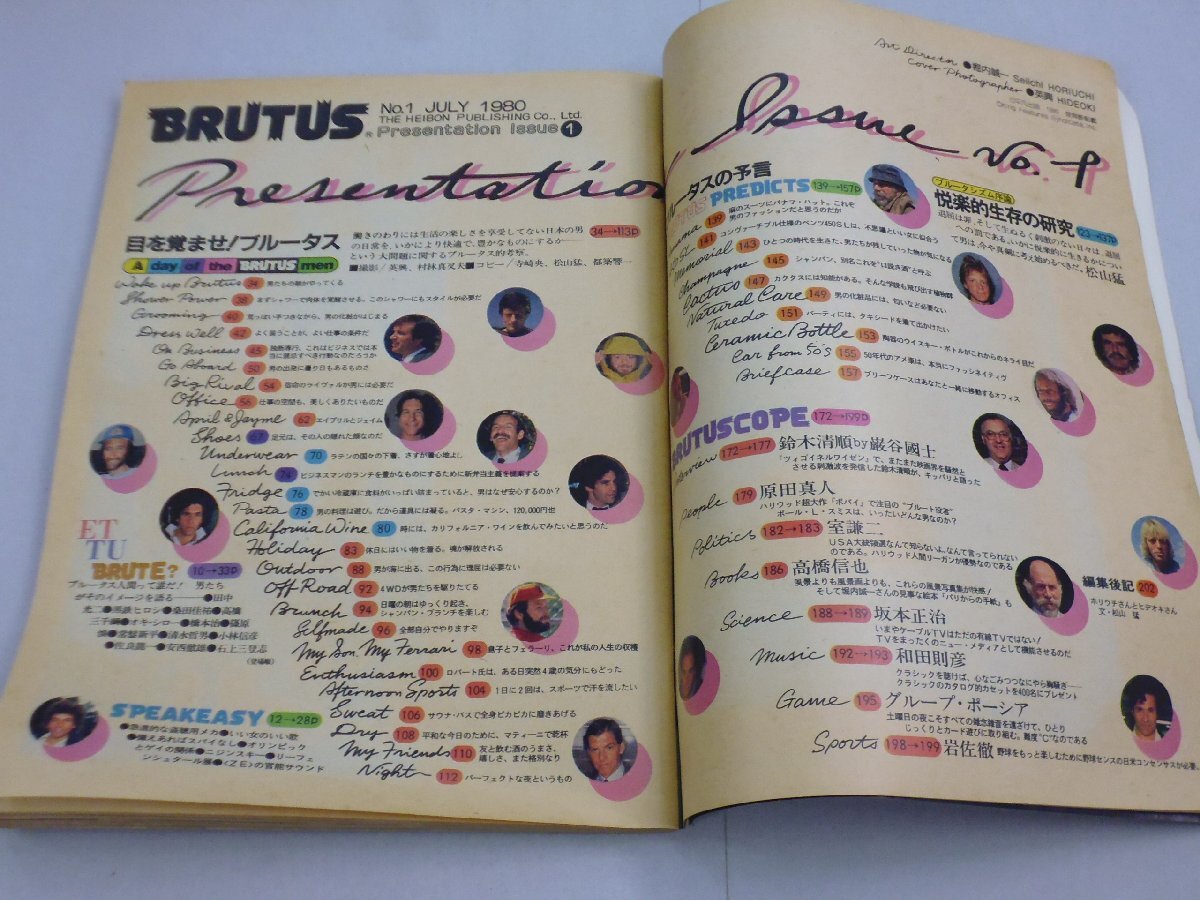 BRUTUS
No.1 JULY 1980
THE HEIBON PUBLISHING Co., Ltd.
Presentation Issue 1
Presentation
目を覚ませ!ブルータス
A day of the BRUTUS men
働きのわりには生活の楽しさを享受してない日本の男
の日常を、いかにより快適で、豊かなものにするか——
という大問題に関するブルータス的考察。
■撮影/英興、村林真叉夫■コピー/寺崎央、松山猛、都築響一
34→113p
Wake up Brutus 34 男たちの朝がやってくる
Shower Power 38 まずシャワーで肉体を覚醒させる。このシャワーにもスタイルが必要だ
Grooming 40 荒っぽい手つきながら、男の化粧がはじまる
Dress Well 42 よく装うことが、よい仕事の条件だ
On Business 45 独断専行、これはビジネスでは本
当に選択すべき行動なのだろうか
Go Aboard 50 男の出発に乗り日もあるものさ
Big Rival 54 宿命のライヴァルが男には必要だ
Office 56 仕事の空間も、美しくありたいものだ
April & Jayme 62 エイプリルとジェイム
Shoes 67 足元は、その人の隠れた顔なのだ
Underwear 70 ラテンの国々の下着、さすが着心地よし
Lunch 74 ビジネスマンのランチを豊かなものにするために新弁当主義を提案する
Fridge 76 でかい冷蔵庫に食料がいっぱい詰まっていると、男はなぜ安心するのか?
Pasta 78 男の料理は遊び。だから道具には凝る。パスタ・マシン、120,000円也
California Wine 80 時には、カリフォルニア・ワインを飲んでみたいと思うのだ
Holiday 83 休日にはいい物を着る。魂が解放される
Outdoor 88 男が海に出る、この行為に理屈は必要ない
Off Road 92 4WDが男たちを駆りたてる
Brunch 94 日曜の朝はゆっくり起き、
シャンパン・ブランチを楽しむ
Selfmade 96 全部自分でやりますぞ
My Son, My Ferrari 98 息子とフェラーリ、これが私の人生の収穫
Enthusiasm 100 ロバート氏は、ある日突然4歳の気分にもどった
Afternoon Sports 104 1日に2回は、スポーツで汗を流したい
Sweat 106 サウナ・バスで全身ピカピカに磨きあげる
Dry 108 平和な今日のために、マティーニで乾杯
My Friends 110 友と飲む酒のうまさ、
嬉しさ、また格別なり
Night 112 パーフェクトな夜というもの
ET
TU
BRUTE?
10→33p
ブルータス人間って誰だ! 男たち
がそのイメージを語る——●田中
光二●黒鉄ヒロシ●桑田佳祐●高橋
三千綱●オキ・シロー●橋本治●篠原
●常盤新平●清水哲男●小林信彦
●佐良 一●安西徹雄●石上三登志
(登場順)
SPEAKEASY
12→28p
●魚進的な盗聴用メカ●いい女のいい歌
●備えあればスパイなし●オリンピック
とゲイの関係●ニジンスキー●リーフェ
ンシュタール展●〈ZE〉の官能サウンド
Art Director ●堀内誠一 Seiichi HORIUCHI
Cover Photographer ●英興 HIDEOKI
Issue No. 1
ータスの予言
PREDICTS 139→157p
139 麻のスーツにパナマ・ハット。これぞ
男のファッションだと思うのだが
141 コンヴァーチブル仕様のベンツ450SLは、不思議といい女に似合う
Memorial 143 ひとつの時代を生きた、男たちが残していった物が気になる
Champagne 145 シャンパン、別名これを“口説き酒”と呼ぶ
Cactus 147 カクタスには知能がある。そんな学説も飛び出す植物師
Natural Care 149 男の化粧品には、匂いなど必要ない
Tuxedo 151 パーティには、タキシードを着て出かけたい
Ceramic Bottle 153 陶器のウイスキー・ボトルがこれからのネライ目だ
Car from 50's 155 50年代のアメ車は、本当にファッシネイティヴ
Briefcase 157 ブリーフケースはあなたと一緒に移動するオフィス
ブルータシズム序論
悦楽的生存の研究
23→137p
退屈は罪。そして生ぬるく刺激のない日々は、退屈
への罰である。いかに悦楽的に生きるかについ
て男は、今や真剣に考え始めるべきだ。松山猛
BRUTUSCOPE 172→199p
172→177 鈴木清順by巖谷國士
「ツィゴイネルワイゼン」で、またまた映画界を騒然と
させる刺激波を発信した鈴木清順が、キッパリと語った
People 179 原田真人
ハリウッド超大作「ポパイ」で注目の“ブルート役者”
ポール・L・スミスは、いったいどんな男なのか?
Politics 182→183 室謙二
USA大統領選なんて知らないよ、なんて言ってられない
のである。ハリウッド人間リーガンが優勢なのである
Books 186 高橋信也
風景よりも風景画よりも、これらの風景写真集が快感!
そして堀内誠一さんの見事な絵本「パリからの手紙」も
Science 188→189 坂本正治
いまやケーブルTVはただの有線TVではない!
TVをまったくのニュー・メディアとして機能させるのだ
Music 192→193 和田則彦
クラシックを聴けば、心なごみつつなにやら胸騒ぎ——
クラシックのカタログ的カセットを400名にプレゼント
Game 195 グループ・ポーシア
土曜日の夜こそすべての雑念雑音を遠ざけて、ひとり
じっくりとカード遊びに取り組む。難度“C”なのである
Sports 198→199 岩佐徹 野球をもっと楽しむために野球センスの日米コンセンサスが必要…
編集後記 202
ホリウチさんとヒデオキさん
文・松山 猛